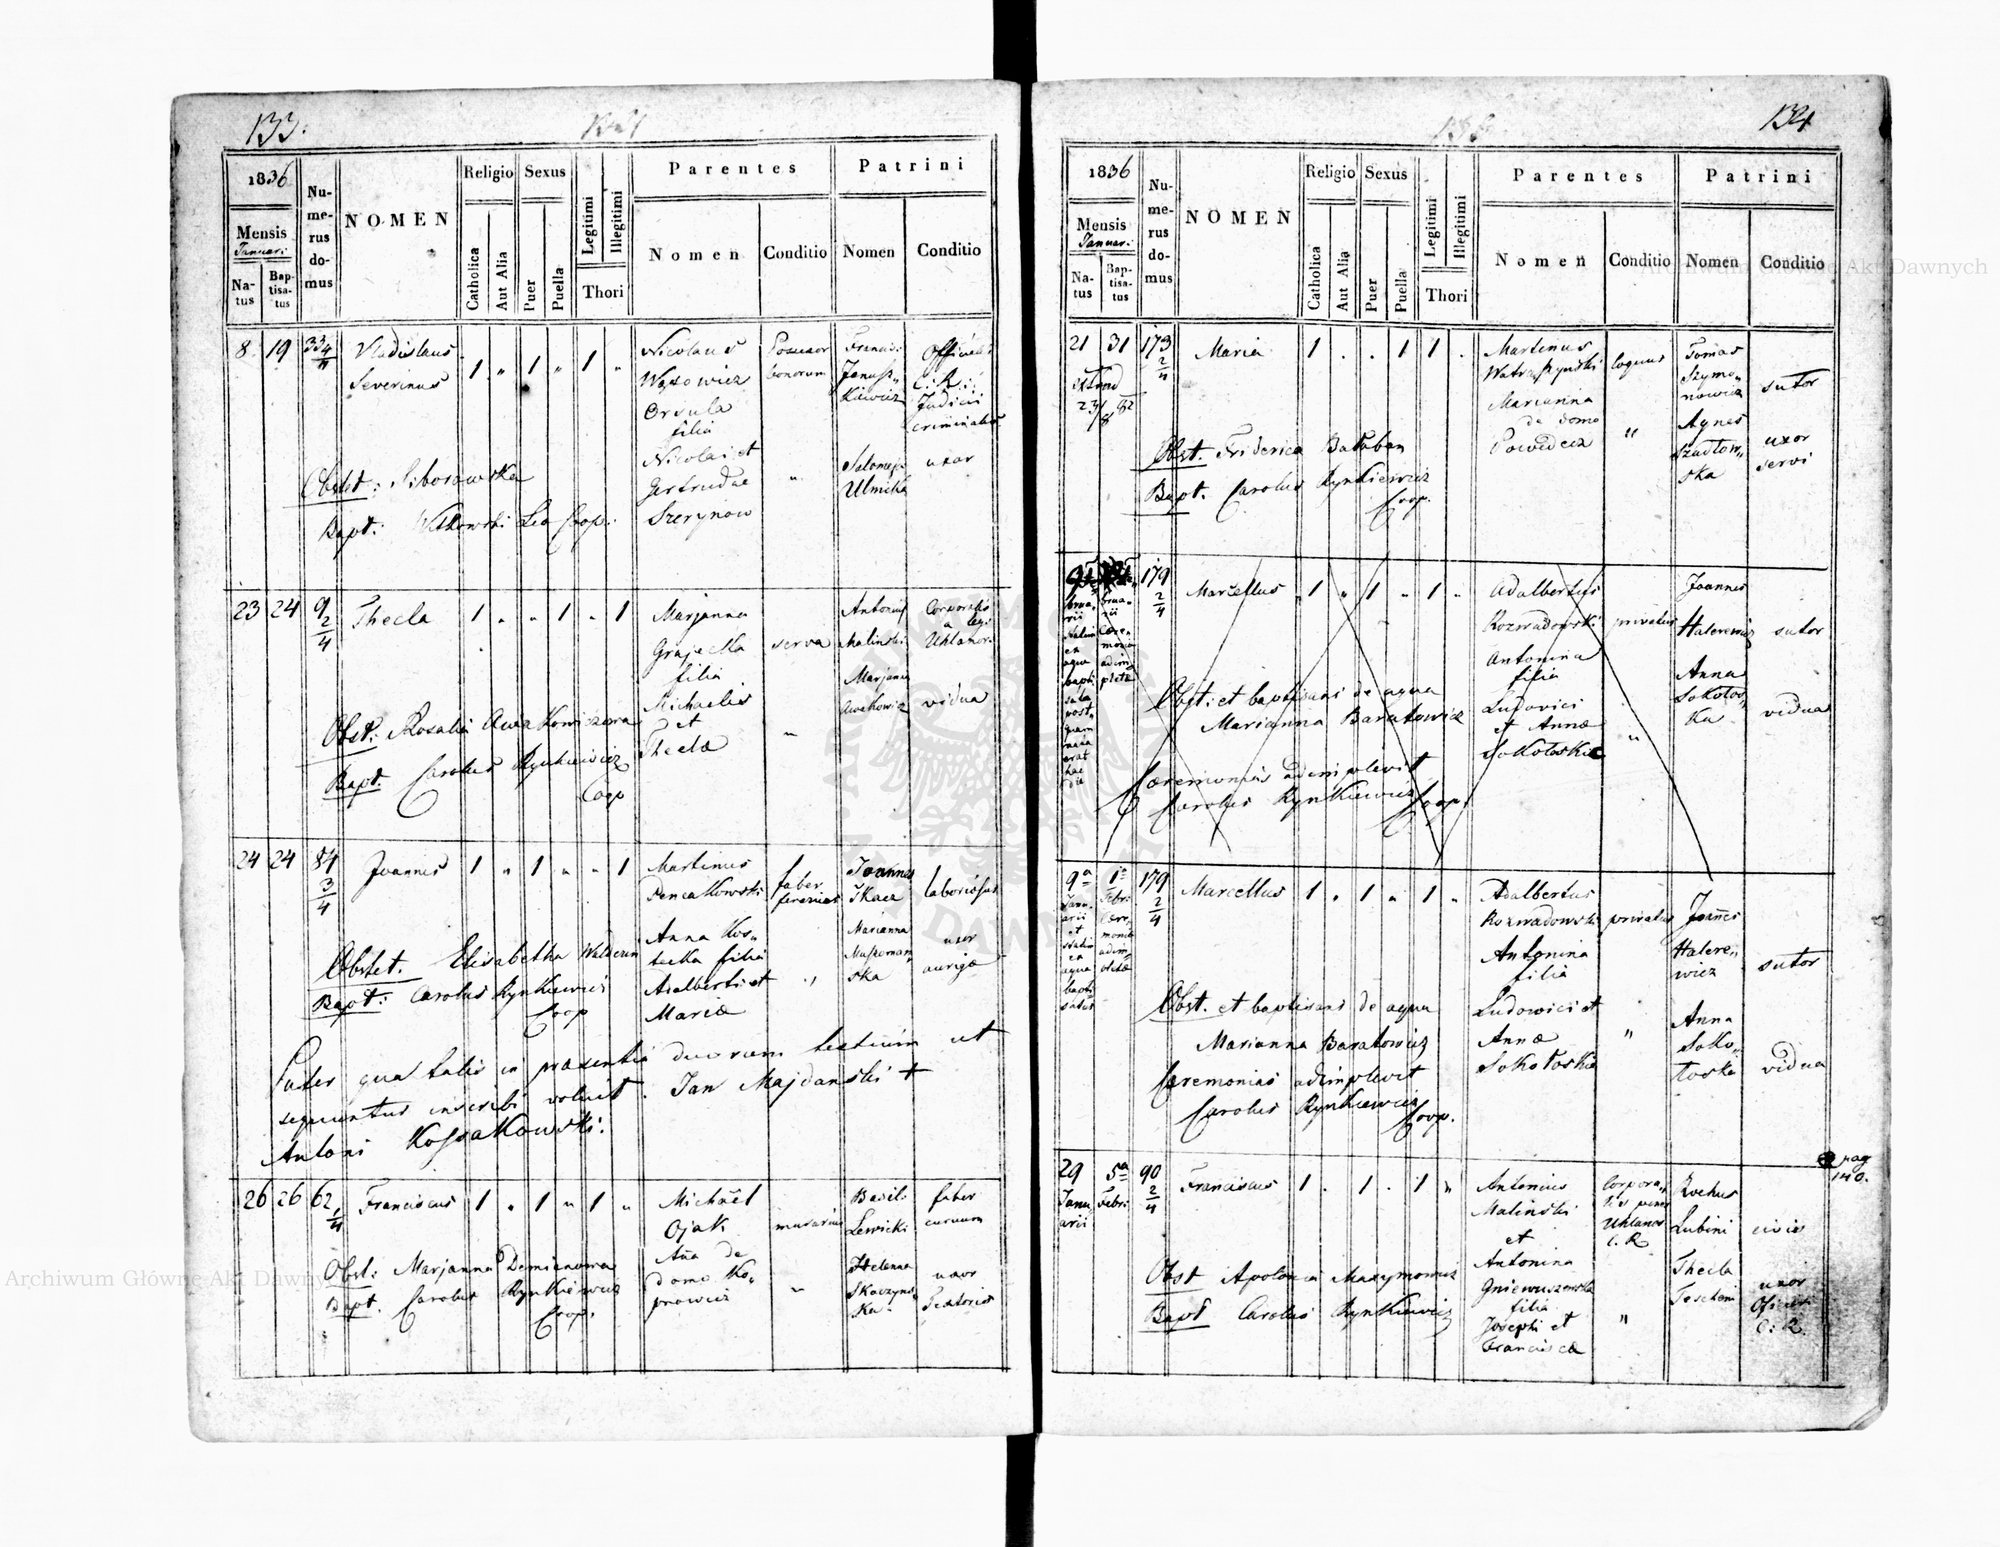 133.
1836
Mensis
Januar:
Natus
Baptisatus
Numerus domus
NOMEN
Religio
Catholica
Aut Alia
Sexus
Puer
Puella
Legitimi
Illegitimi
Thori
Parentes
Nomen
Conditio
Patrini
Nomen
Conditio
8. 19
Vladislaus
Severinus
1 " 1 " 1 "
Nicolaus
Wąsowicz
Orsula
filia
Nicolai et
Gertrudae
Possessor
bonorum
"
Francis:
Janusz„
kiewicz
Salomeja
Ulmicka
Officialis
C: R:
Judicii
criminalis
uxor
Obstet:
Bapt: Witkowski Leo Coop:
23 24 9 2/4
Thecla
1 " " 1 " 1
Marjanna
Grajecka
filia
Michaelis
et
Theclæ
serva
"
Antonius
Malinski
Marjanna
Corporalis
a leg:
Uhlanor:
vidua
Obst: Rosalia
Bapt. Carolus Rynkiewicz
Coop
24 24 84 3/4
Joannes
1 " 1 " " 1
Martinus
Pencakowski
Anna Kos„
tecka filia
Adalberti et
Mariæ
faber
"
Joannes
Tkacz
Marianna
ska
laboriosus
uxor
aurigæ
Obstet. Elisabetha
Bapt: Carolus Rynkiewicz
Coop
Pater qua talis in præsentia duorum testium ut
sequuntur inscribi voluit. Jan Majdański +
Antoni Kossakowski.
26 26 62 1/4
Franciscus
1 " 1 " 1 "
Michael
Ojak
Aña de
domo Ko„
prowicz
murarius
"
Basili
Lewicki
Helenna
Skaczyns„
ka
faber
curuum
uxor
Textoris
Obst: Marjanna Demianowa
Bapt. Carolus Rynkiewicz
Coop.
134
1836
Mensis
Januar:
Natus
Baptisatus
Numerus domus
NOMEN
Religio
Catholica
Aut Alia
Sexus
Puer
Puella
Legitimi
Illegitimi
Thori
Parentes
Nomen
Conditio
Patrini
Nomen
Conditio
21 31 173 2/4
Maria
1 . . 1 1 .
Martinus
Marianna
de domo
coquus
"
Tomas
Szymo„
nowicz
Agnes
Szadkow„
ska
sutor
uxor
servi
Obst. Friderica Bałaban
Bapt. Carolus Rynkiewicz
Coop.
179 2/4
Marcellus
1 " 1 " 1 "
Adalbertus
Rozwadowski
Antonina
filia
Ludovici
et Annæ
Sokołoskie
privatus
"
Joannes
Halerewicz
Anna
Sokołos„
ka
sutor
vidua
Obst: et baptisans de aqua
Marianna Baratowicz
Cæremonias adimplevit
Carolus Rynkiewicz
Coop.
9ª
Janu„
arii
et
statim
ex
aqua
bapti
satus
1ª
Febri
Cære„
moniæ
adim„
pletæ
179 2/4
Marcellus
1 " 1 " 1 "
Adalbertus
Rozwadowski
Antonina
filia
Ludowici et
Annæ
Sokołoskie
privatus
"
Joañes
Halere„
wicz
Anna
Soko„
łoska
sutor
vidua
Obst. et baptisans de aqua
Marianna Baratowicz
Cæremonias adimplevit
Carolus Rynkiewicz
Coop.
pag
140.
29
Janu
arii
5ª
Febri
90 2/4
Franciscus
1 . 1 . 1 "
Antonius
Malinski
et
Antonina
Gniewuszowska
filia
Josephi et
Franciscæ
Corpora„
lis penes
Uhlanos
C. R
"
Rochus
Lubini
Thecla
Teschoni
civis
uxor
C: R.
Obst Apolonia Maxymowicz
Bapt Carolus Rynkiewicz
Archiwum Główne Akt Dawnych
Archiwum Główne Akt Dawnych